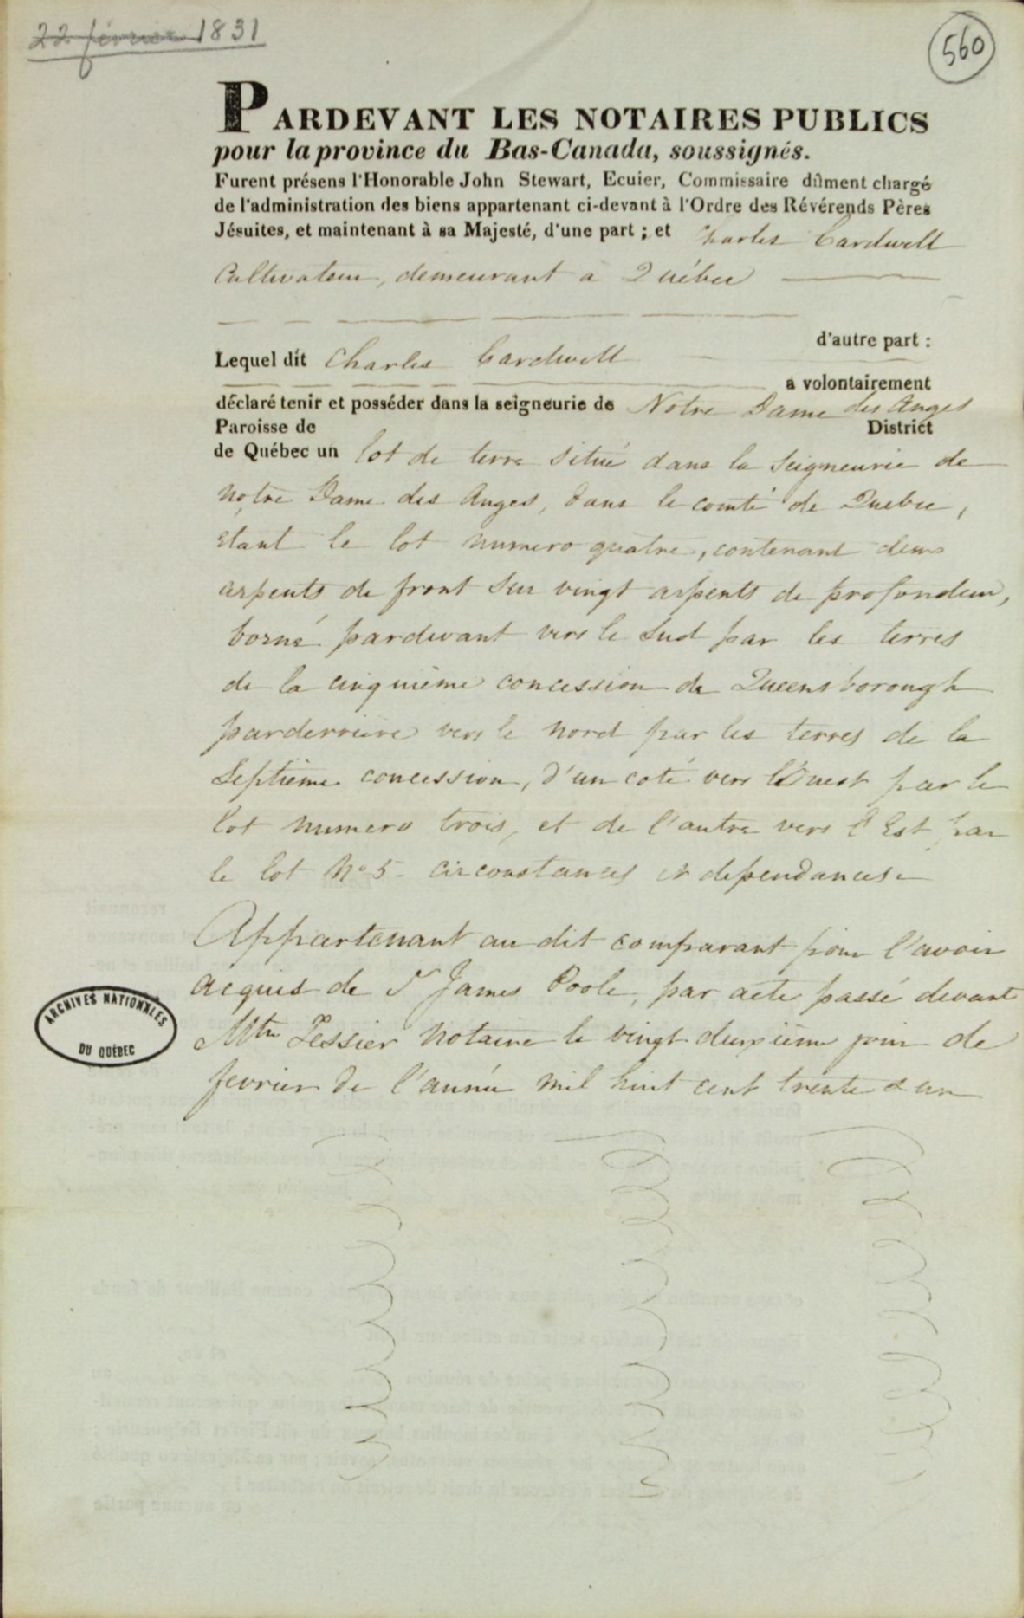 22 février 1831
560
PARDEVANT LES NOTAIRES PUBLICS
pour la province du Bas-Canada, soussignés.
Furent présens l'Honorable John Stewart, Ecuier, Commissaire dûment chargé
de l'administration des biens appartenant ci-devant à l'Ordre des Révérends Pères
Jésuites, et maintenant à sa Majesté, d'une part ; et Charles Cardwell
Cultivateur, demeurant a Québec
d'autre part :
Lequel dit Charles Cardwell
a volontairement
déclaré tenir et posséder dans la seigneurie de Notre Dame des Anges
Paroisse de District
de Québec un lot de terre situé dans la Seigneurie de
notre Dame des Anges, dans le comté de Quebec,
etant le lot numero quatre, contenant deux
arpents de front sur vingt arpents de profondeur,
borné pardevant vers le Sud par les terres
de la cinquième concession de Queensborough
parderrière vers le nord par les terres de la
Septième concession, d'un coté vers l'Ouest par le
lot numero trois, et de l'autre vers l'Est par
le lot No 5 circonstances et dependances
Appartenant au dit comparant pour l'avoir
acquis de Sr James Poole, par acte passé devant
Mtre Tessier notaire le vingt deuxième jour de
fevrier de l'année mil huit cent trente & un
ARCHIVES NATIONALES
DU QUÉBEC